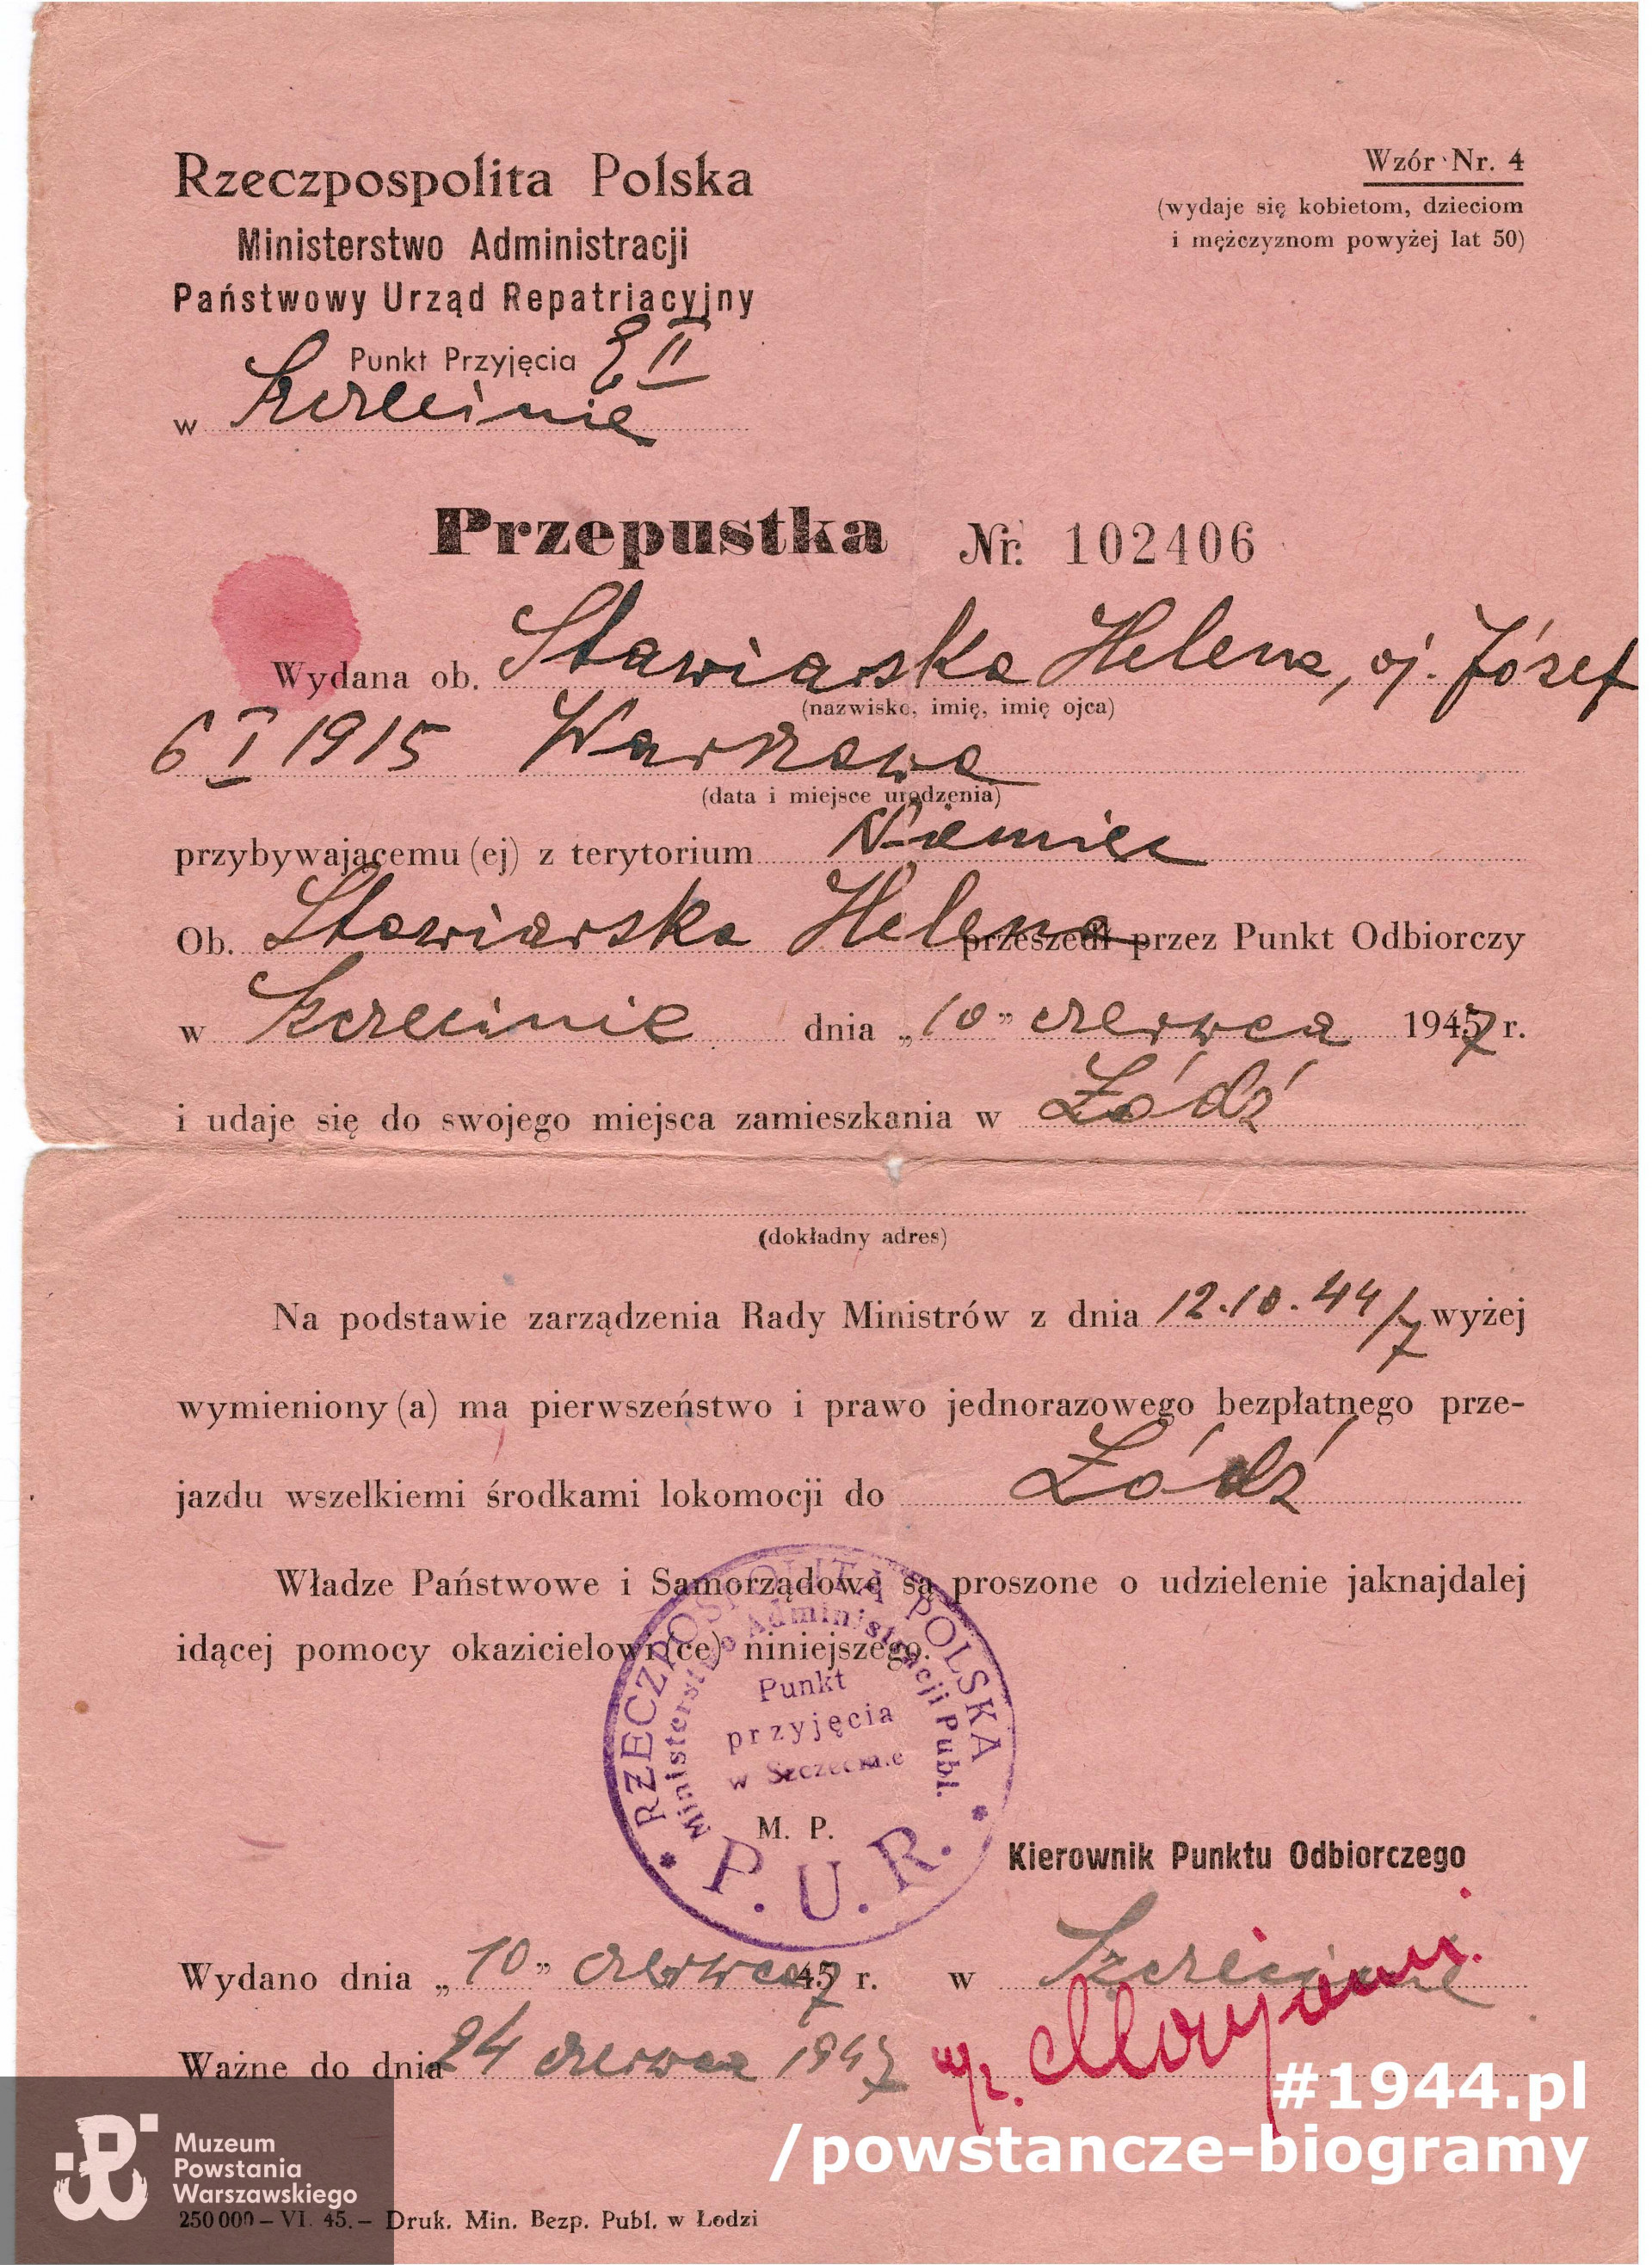 Rzeczpospolita Polska
Ministerstwo Administracji
Państwowy Urząd Repatriacyjny
Punkt Przyjęcia E II
w Szczecinie
Wzór Nr. 4
(wydaje się kobietom, dzieciom
i mężczyznom powyżej lat 50)
Przepustka Nr. 102406
Wydana ob. Stawiarska Helena, oj. Józef
(nazwisko, imię, imię ojca)
6 I 1915 Warszawa
(data i miejsce urodzenia)
przybywającemu (ej) z terytorium Niemiec
Ob. Stawiarska Helena przeszedł przez Punkt Odbiorczy
w Szczecinie dnia „10” czerwca 1947 r.
i udaje się do swojego miejsca zamieszkania w Łódź
(dokładny adres)
Na podstawie zarządzenia Rady Ministrów z dnia 12.10.44/7 wyżej
wymieniony (a) ma pierwszeństwo i prawo jednorazowego bezpłatnego prze-
jazdu wszelkiemi środkami lokomocji do Łódź
Władze Państwowe i Samorządowe są proszone o udzielenie jaknajdalej
idącej pomocy okazicielowi (ce) niniejszego.
RZECZPOSPOLITA POLSKA
Ministerstwo Administracji Publ.
Punkt
przyjęcia
w Szczecinie
P. U. R.
M. P.
Kierownik Punktu Odbiorczego
Wydano dnia „10” czerwca 47 r. w Szczecinie
Ważne do dnia 24 czerwca 1947
#1944.pl
/powstancze-biogramy
Muzeum
Powstania
Warszawskiego
250 000 – VI. 45. – Druk. Min. Bezp. Publ. w Łodzi